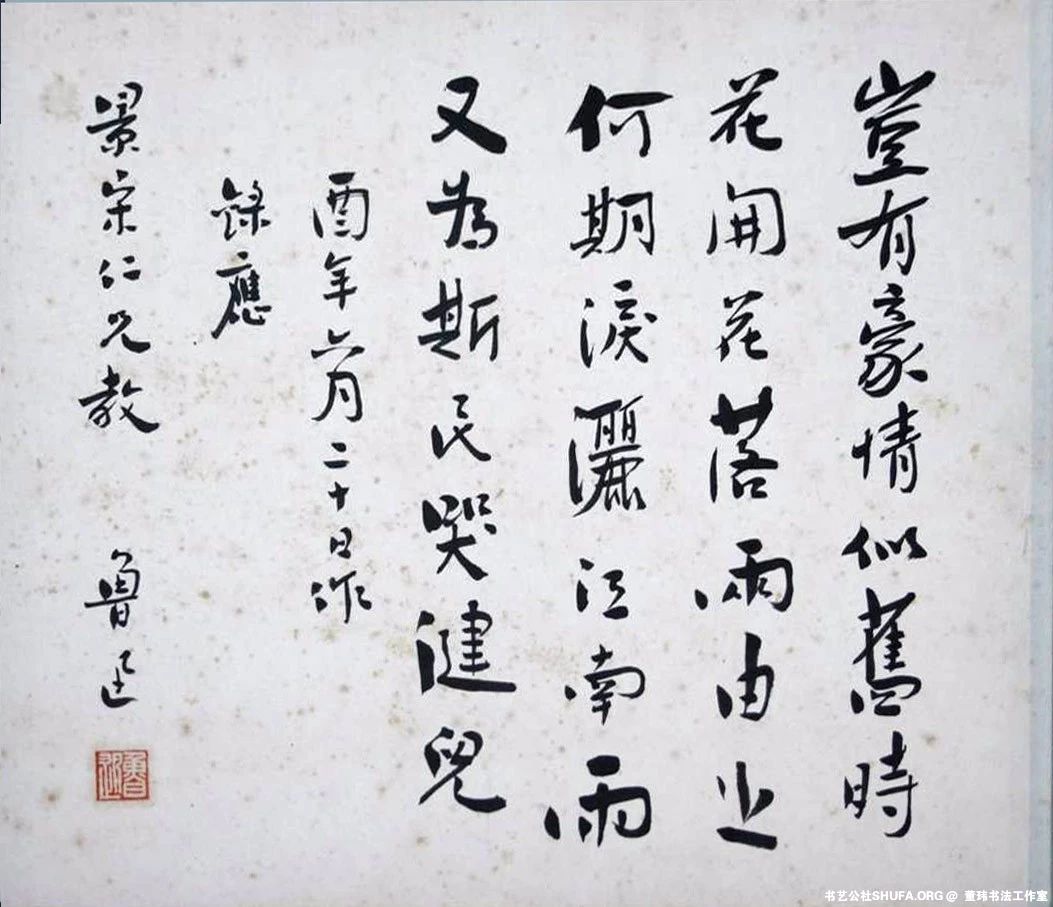 豈有豪情似舊時
花開花落兩由之
何期淚灑江南雨
又為斯民哭健兒
酉年六月二十日作
錄應
景宋仁兄教 魯迅
魯迅
书艺公社SHUFA.ORG @ 董玮书法工作室